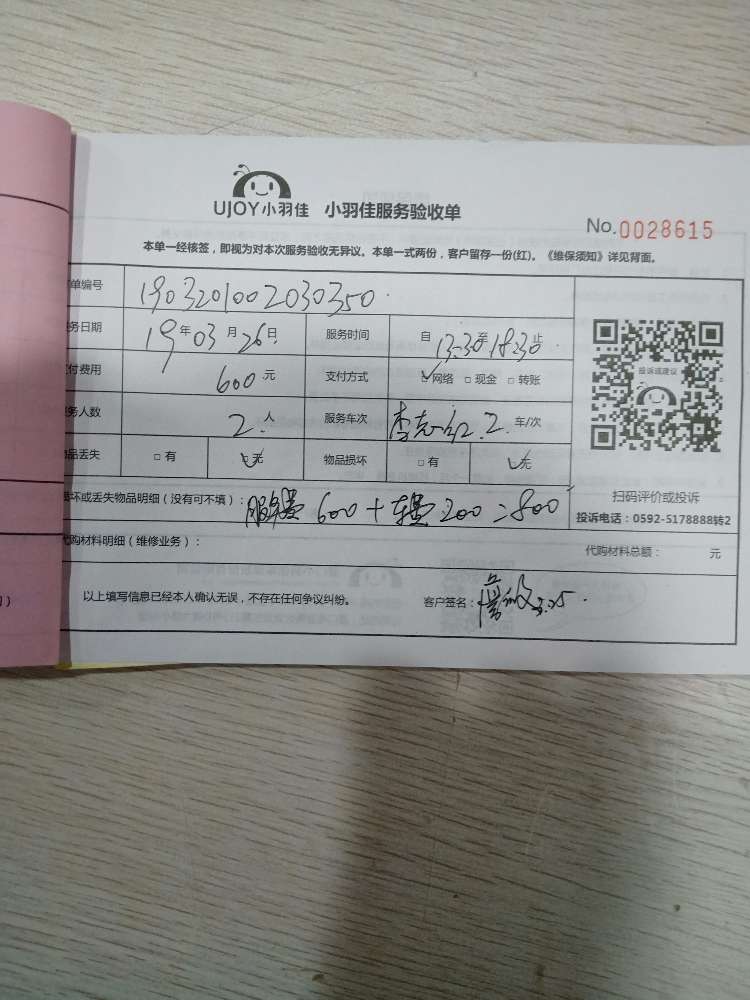 UJOY小羽佳 小羽佳服务验收单
No.0028615
本单一经核签，即视为对本次服务验收无异议。本单一式两份，客户留存一份(红)。《维保须知》详见背面。
单编号 1903201002030350
务日期 19年03月26日 服务时间 自13:30至18:30止
付费用 600元 支付方式 ☑网络 □现金 □转账
务人数 2人 服务车次 李志红 2 车/次
品丢失 □有 ☑无 物品损坏 □有 ☑无
投诉或建议
扫码评价或投诉
投诉电话：0592-5178888转2
坏或丢失物品明细（没有可不填）：服务费600+车费200=800
代购材料明细（维修业务）： 代购材料总额： 元
以上填写信息已经本人确认无误，不存在任何争议纠纷。 客户签名：